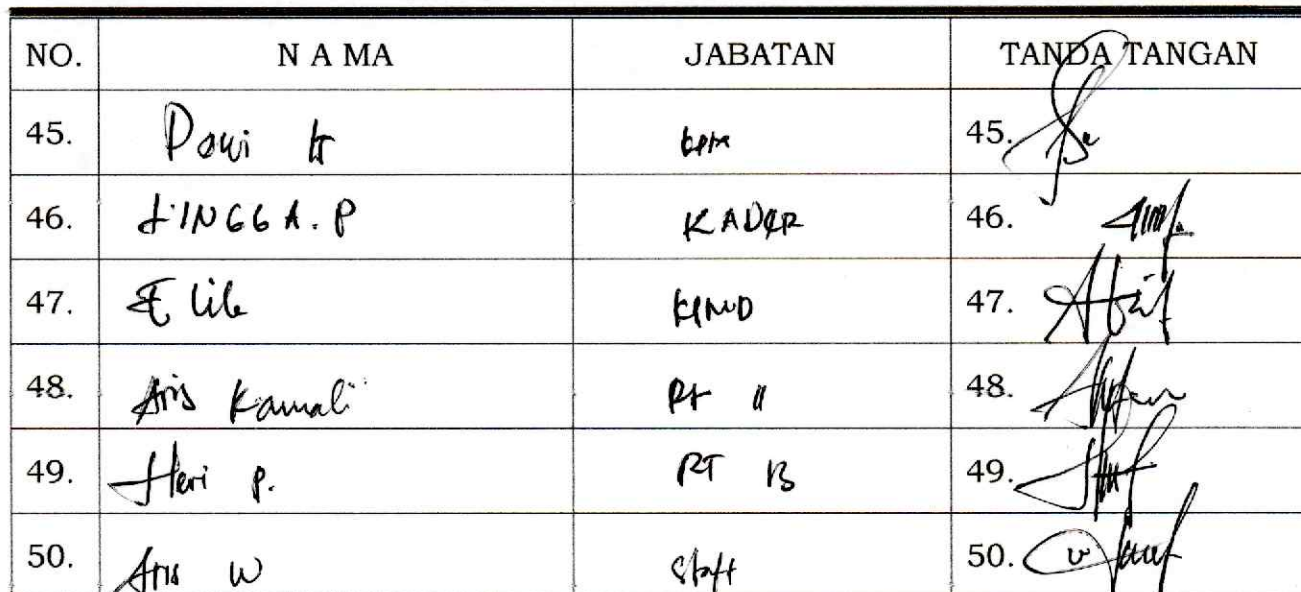 NO. N A MA JABATAN TANDA TANGAN
45. Dawi H 45.
46. LINGGA. P KADER 46.
47. E lile 47.
48. Aris Kamali RT 11 48.
49. Heri P. RT 13 49.
50. Aris W Staff 50.